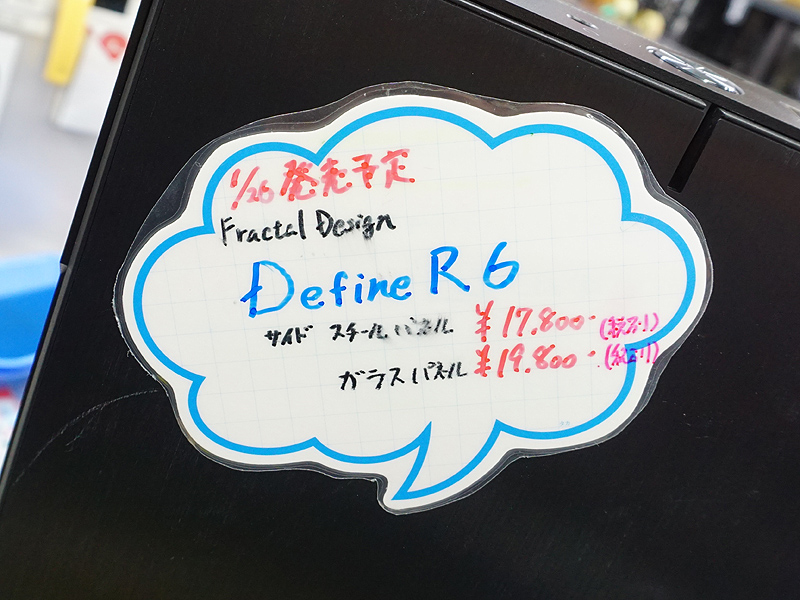 1/26 発売予定
Fractal Design
Define R6
サイド スチールパネル ¥17.800- (税別)
ガラスパネル ¥19.800- (税別)